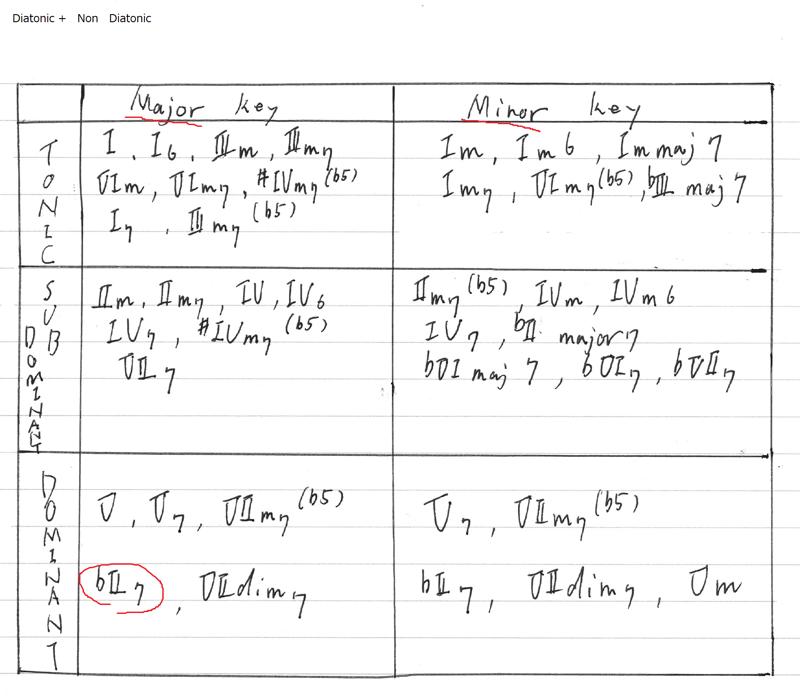 Diatonic + Non Diatonic
Major key
Minor key
TONIC
I , I6 , IIIm , IIIm7
VIm , VIm7 , #IVm7(b5)
I7 , IIIm7(b5)
Im , Im6 , Im maj 7
Im7 , VIm7(b5) , bIII maj 7
SUB DOMINANT
IIm , IIm7 , IV , IV6
IV7 , #IVm7(b5)
VII7
IIm7(b5) , IVm , IVm6
IV7 , bII major7
bVI maj 7 , bVI7 , bVII7
DOMINANT
V , V7 , VIIm7(b5)
bII7 , VIIdim7
V7 , VIIm7(b5)
bII7 , VIIdim7 , Vm